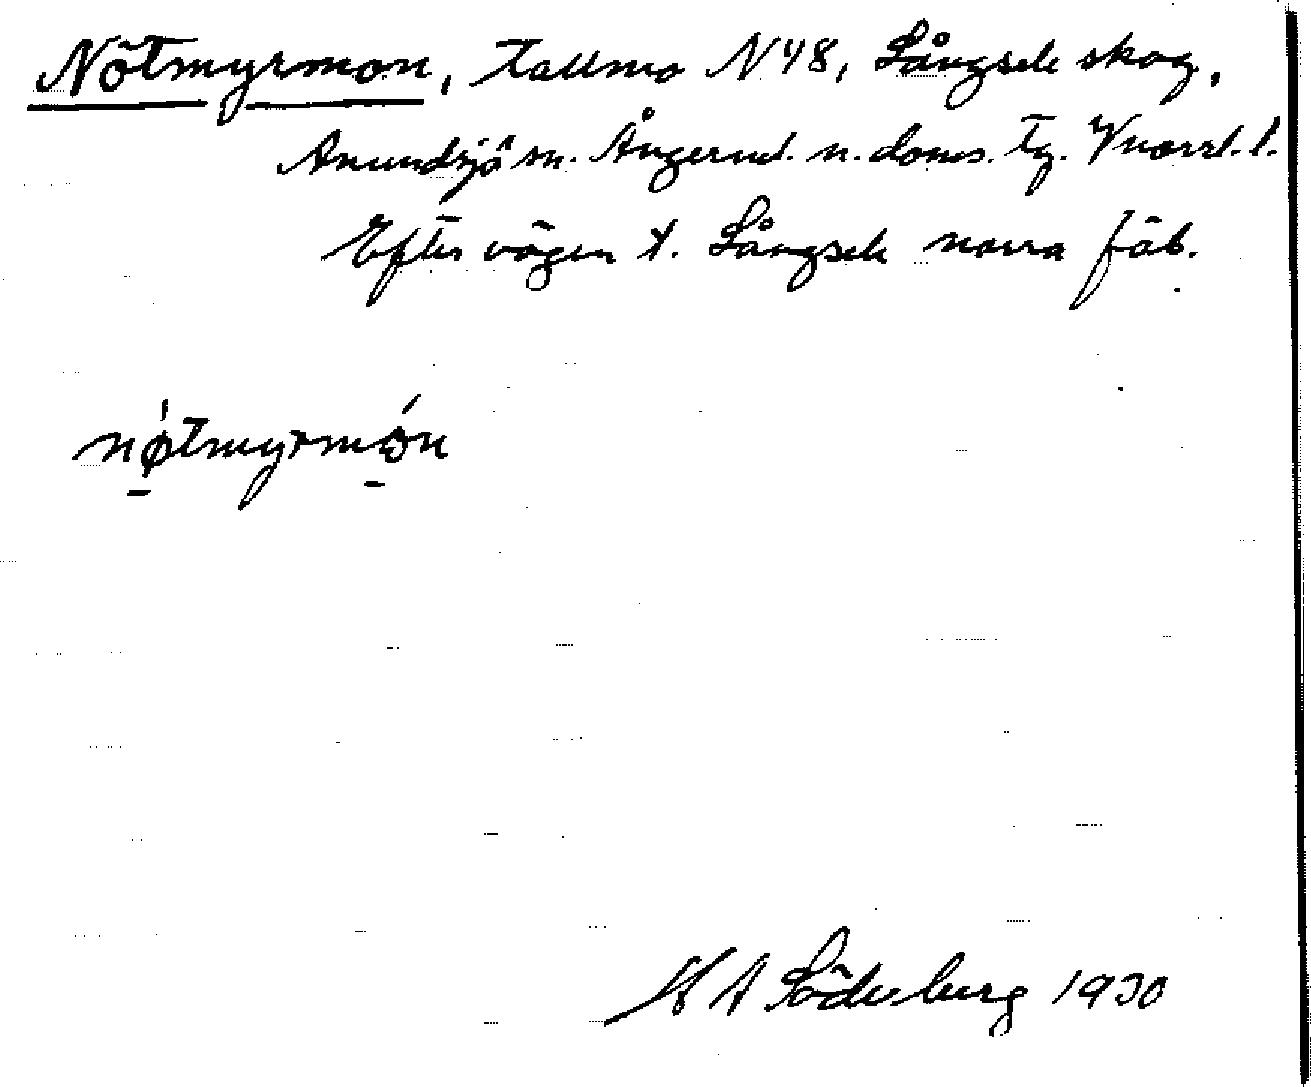 Nötmyrmon, tallmo N48, Långsele skog,
Anundsjö sn. Ångerml. n. doms. tg. Vnorrl. l.
Efter vägen t. Långsele norra fäb.
nǿtmyrmón
H A Söderberg 1930